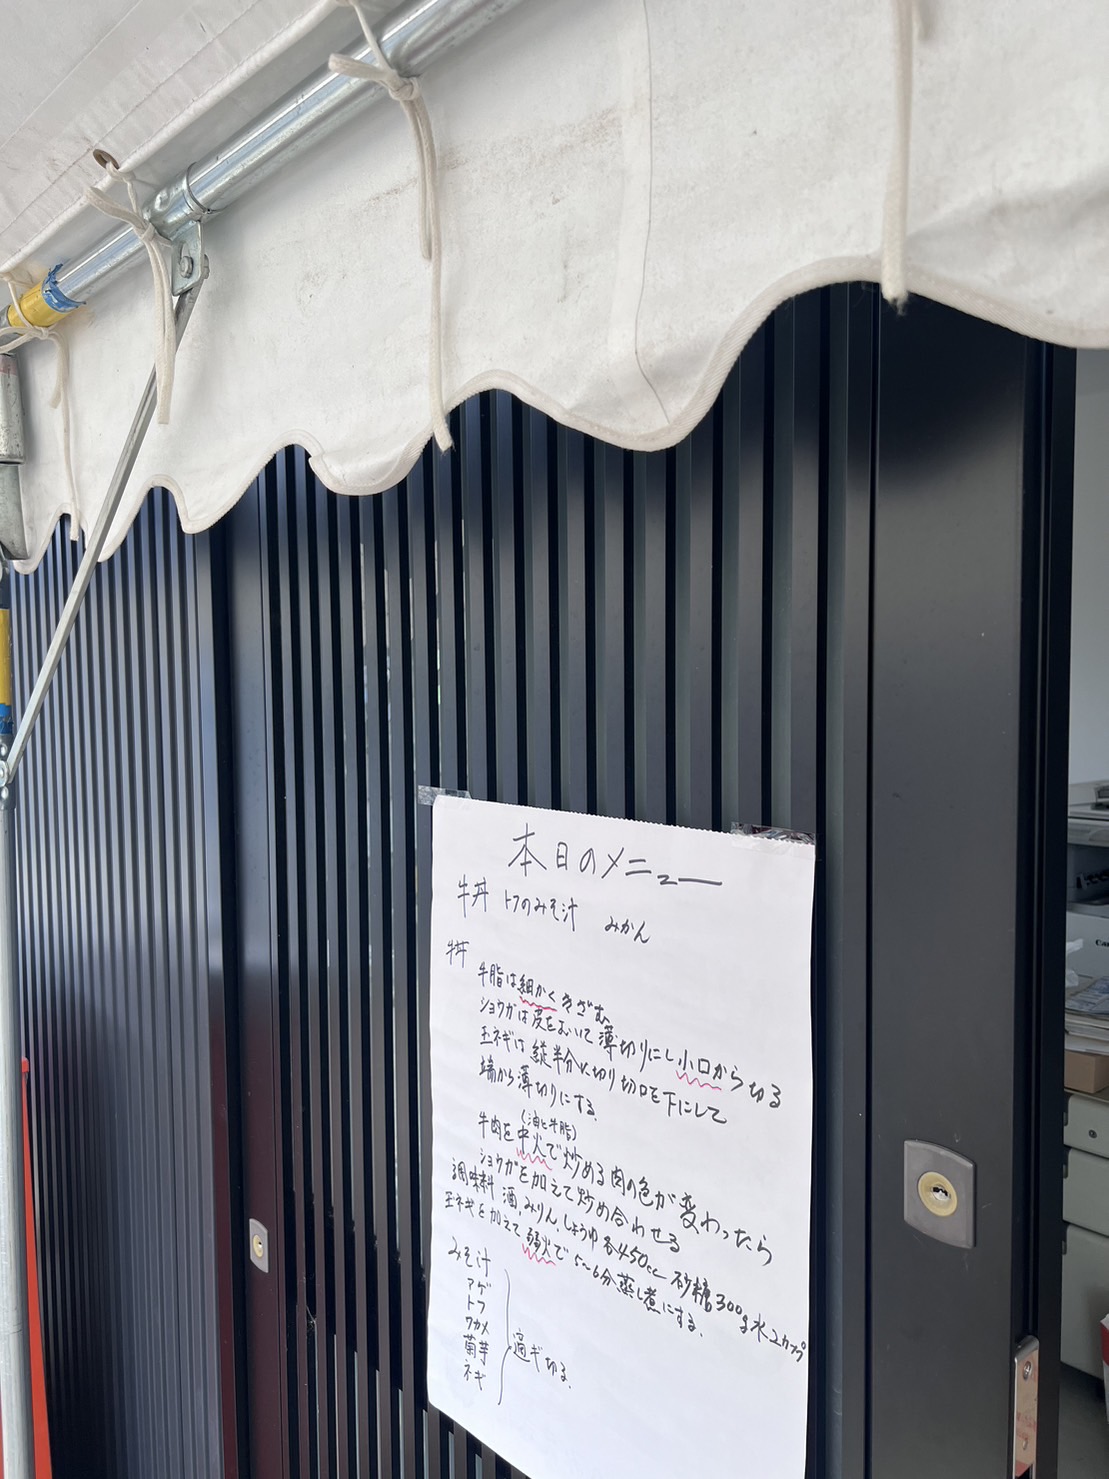 本日のメニュー
牛丼 トフのみそ汁 みかん
牛丼
牛脂は細かくきざむ
ショウガは皮をおいて薄切りにし小口から切る
玉ネギは縦半分に切り切口を下にして
端から薄切りにする。
(油ヒ牛脂)
牛肉を中火で炒める肉の色が変わったら
ショウガを加えて炒め合わせる
調味料 酒,みりん,しょうゆ各450cc 砂糖300g水2カップ
玉ネギを加えて弱火で5〜6分蒸し煮にする.
みそ汁
アゲ
トフ
ワカメ
菊芋
ネギ
適ギ切る.
Can